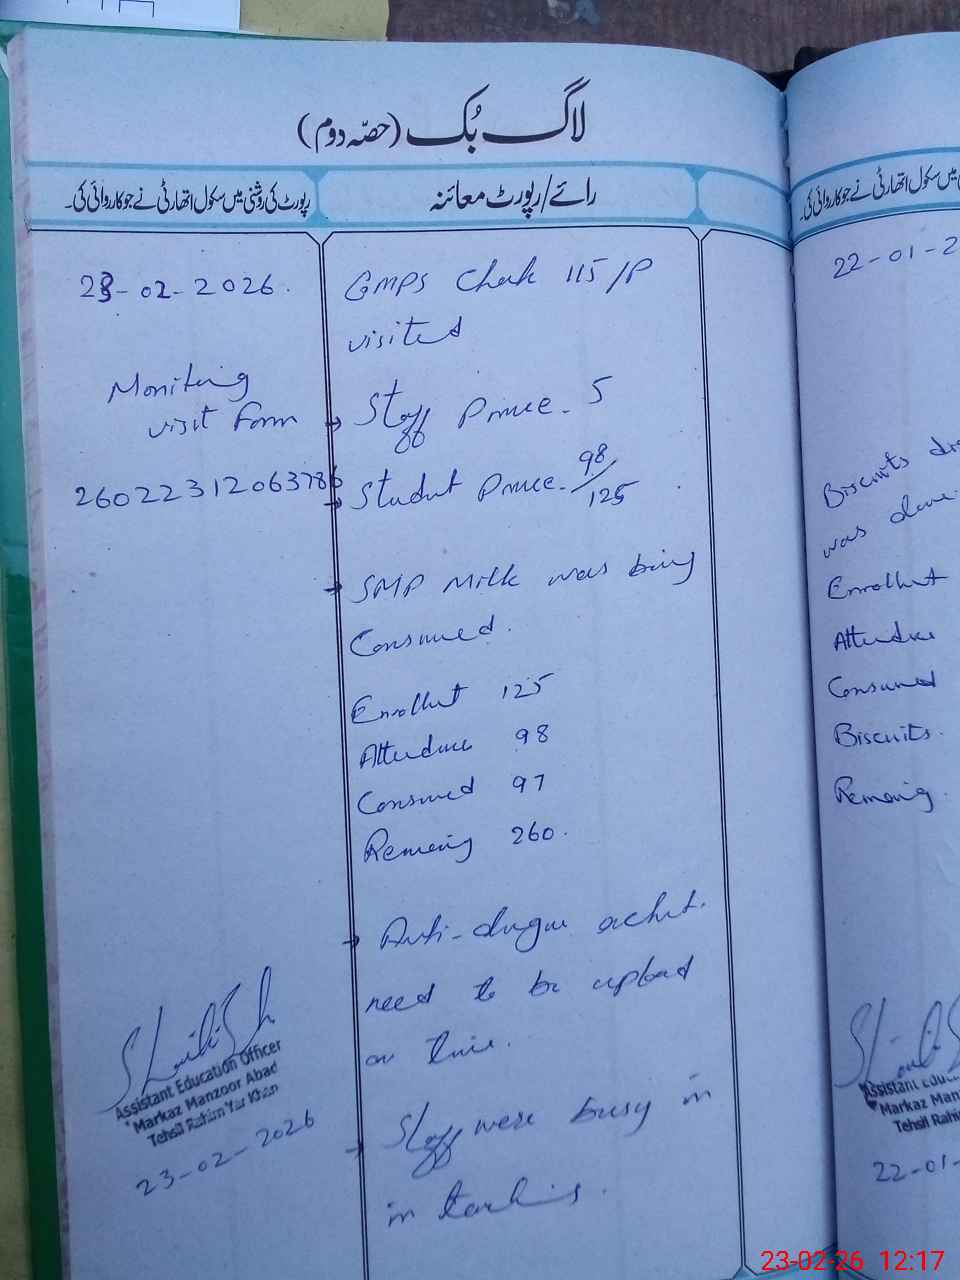 لاگ بُک (حصّہ دوم)
رپورٹ کی روشنی میں سکول اتھارٹی نے جو کارروائی کی۔
رائے/رپورٹ معائنہ
23-02-2026.
Moniting
visit Form
26022312063786
GMPS Chak 115/P
visited
→ Staff Prence. 5
→ Studut Prence. 98/125.
→ SMP Milk was being
Consumed.
Enrollmt 125
Attendnce 98
Consumed 97
Remening 260.
→ Anti-dngue
need to be upload
on time.
→ Staff were busy in
in
Assistant Education Officer
Markaz Manzoor Abad
Tehsil Rahim Yar Khan
23-02-2026
سکول اتھارٹی نے جو کارروائی کی۔
22-01-2
Biscuits
was done.
Enrollmt
Attendnce
Consumed
Biscuits.
Remening.
Assistant
Markaz Man
Tehsil Rahi
22-01-
23-02-26 12:17